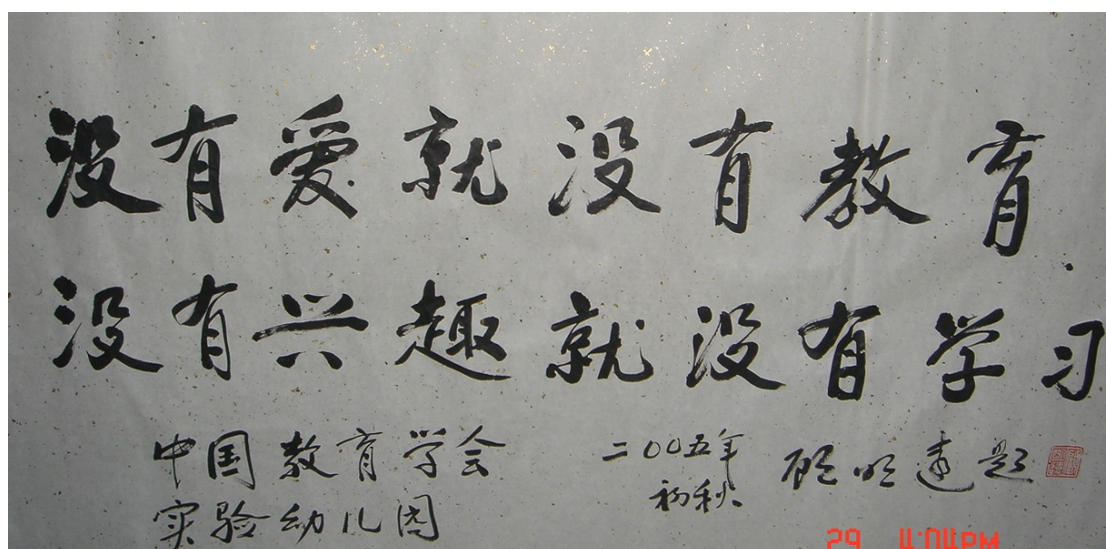 没有爱就没有教育.
没有兴趣就没有学习
中国教育学会
实验幼儿园
二00五年
初秋
顾明远题
29 4:04PM